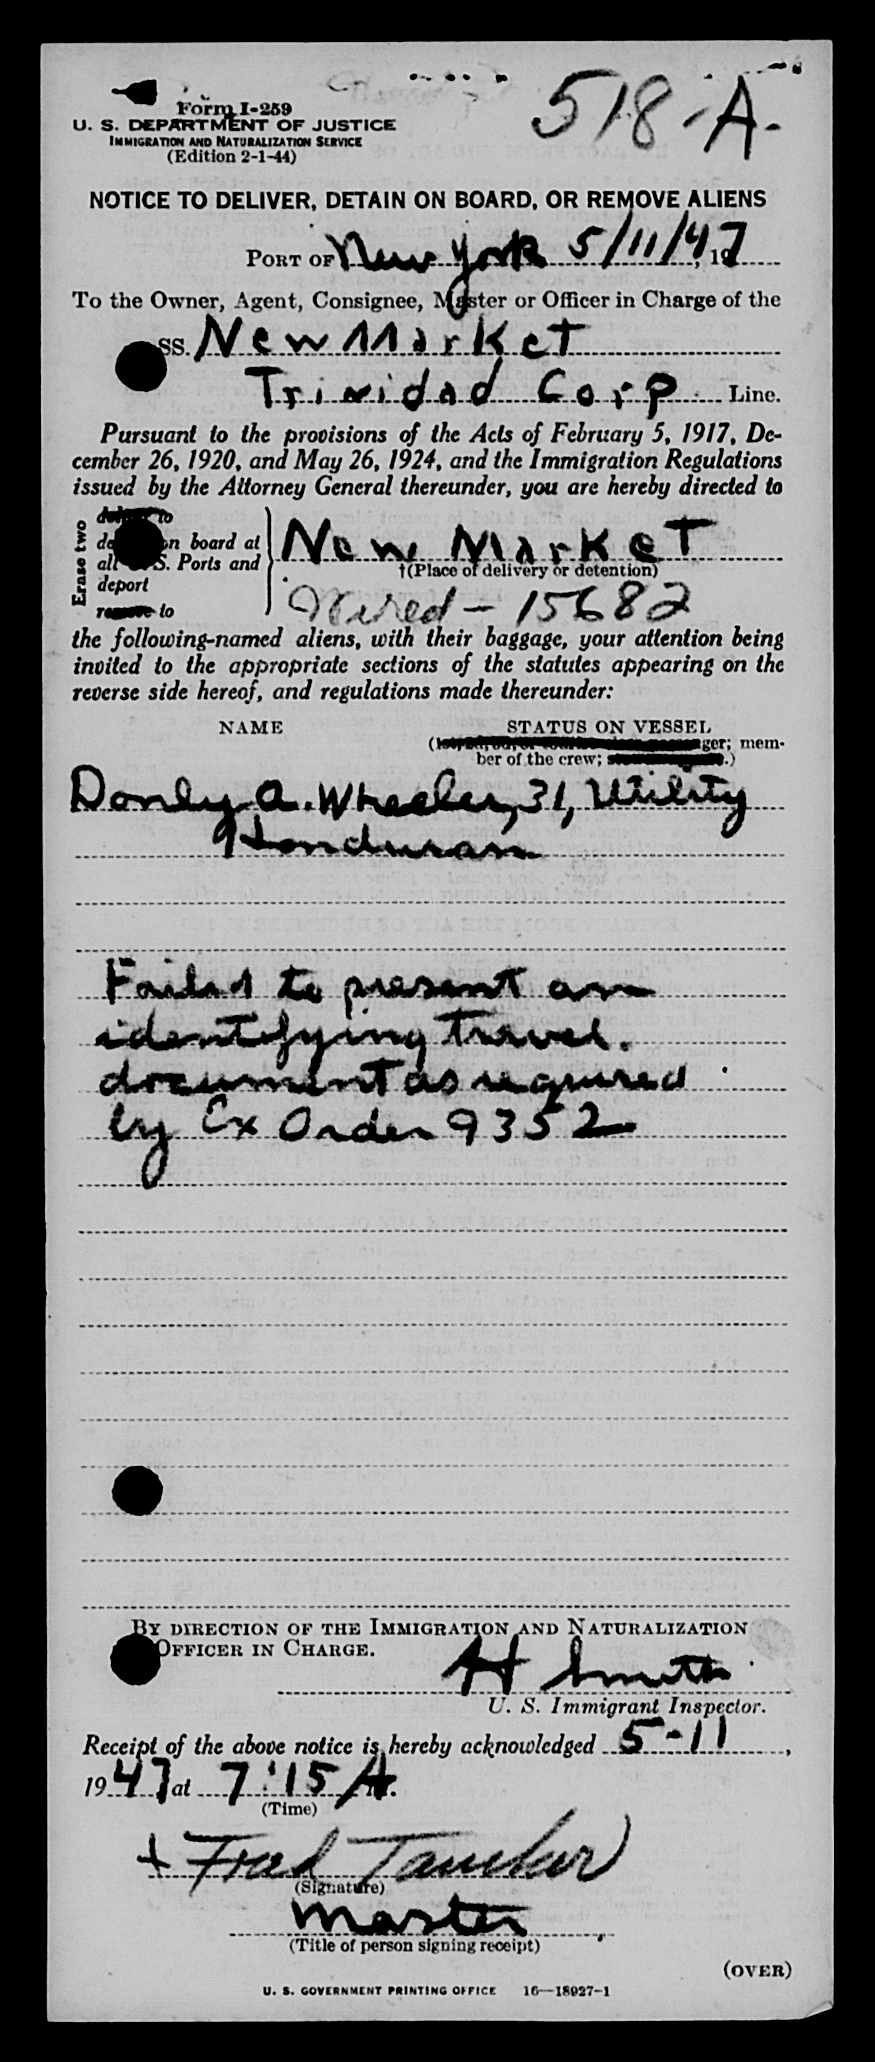 518-A-
Form I-259
U. S. DEPARTMENT OF JUSTICE
IMMIGRATION AND NATURALIZATION SERVICE
(Edition 2-1-44)
NOTICE TO DELIVER, DETAIN ON BOARD, OR REMOVE ALIENS
PORT OF New York 5/11/47, 19
To the Owner, Agent, Consignee, Master or Officer in Charge of the
SS. New Market
Trinidad Corp Line.
Pursuant to the provisions of the Acts of February 5, 1917, De-
cember 26, 1920, and May 26, 1924, and the Immigration Regulations
issued by the Attorney General thereunder, you are hereby directed to
Erase two
to
on board at
all U. S. Ports and
deport
to
New Market
†(Place of delivery or detention)
Wired - 15682
the following-named aliens, with their baggage, your attention being
invited to the appropriate sections of the statutes appearing on the
reverse side hereof, and regulations made thereunder:
NAME STATUS ON VESSEL
ger; mem-
ber of the crew; .)
Donly A. Wheeler, 31, Utility
Honduran
Failed to present an
identifying travel.
document as required
by Ex Order 9352
BY DIRECTION OF THE IMMIGRATION AND NATURALIZATION
OFFICER IN CHARGE.
H Smith
U. S. Immigrant Inspector.
Receipt of the above notice is hereby acknowledged 5-11,
1947 at 7:15 A M.
(Time)
+ Fred
(Signature)
Master
(Title of person signing receipt)
(OVER)
U. S. GOVERNMENT PRINTING OFFICE 16—18927-1